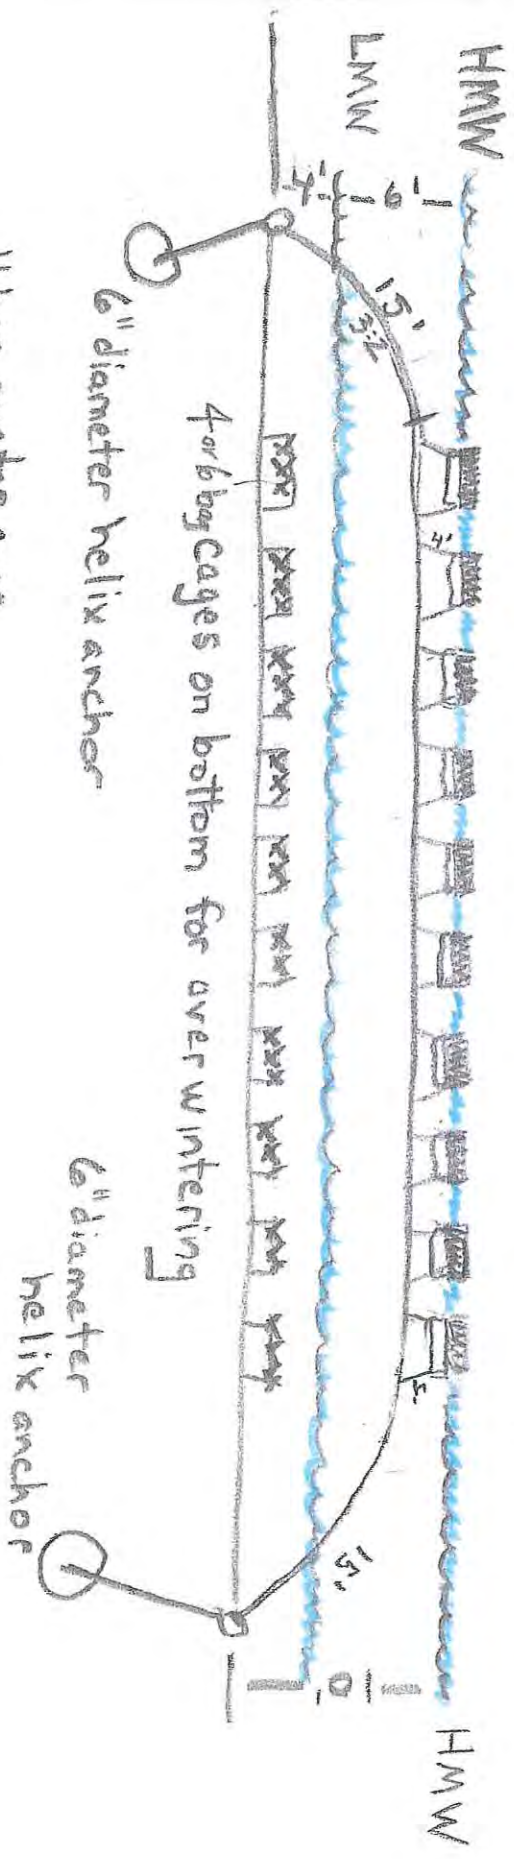 HMW
LMW
4'
6'
15'
3:1
4'
5'
15'
10'
HMW
4 or 6 bag Cages on bottom for overwintering
6" diameter helix anchor
6" diameter
helix anchor